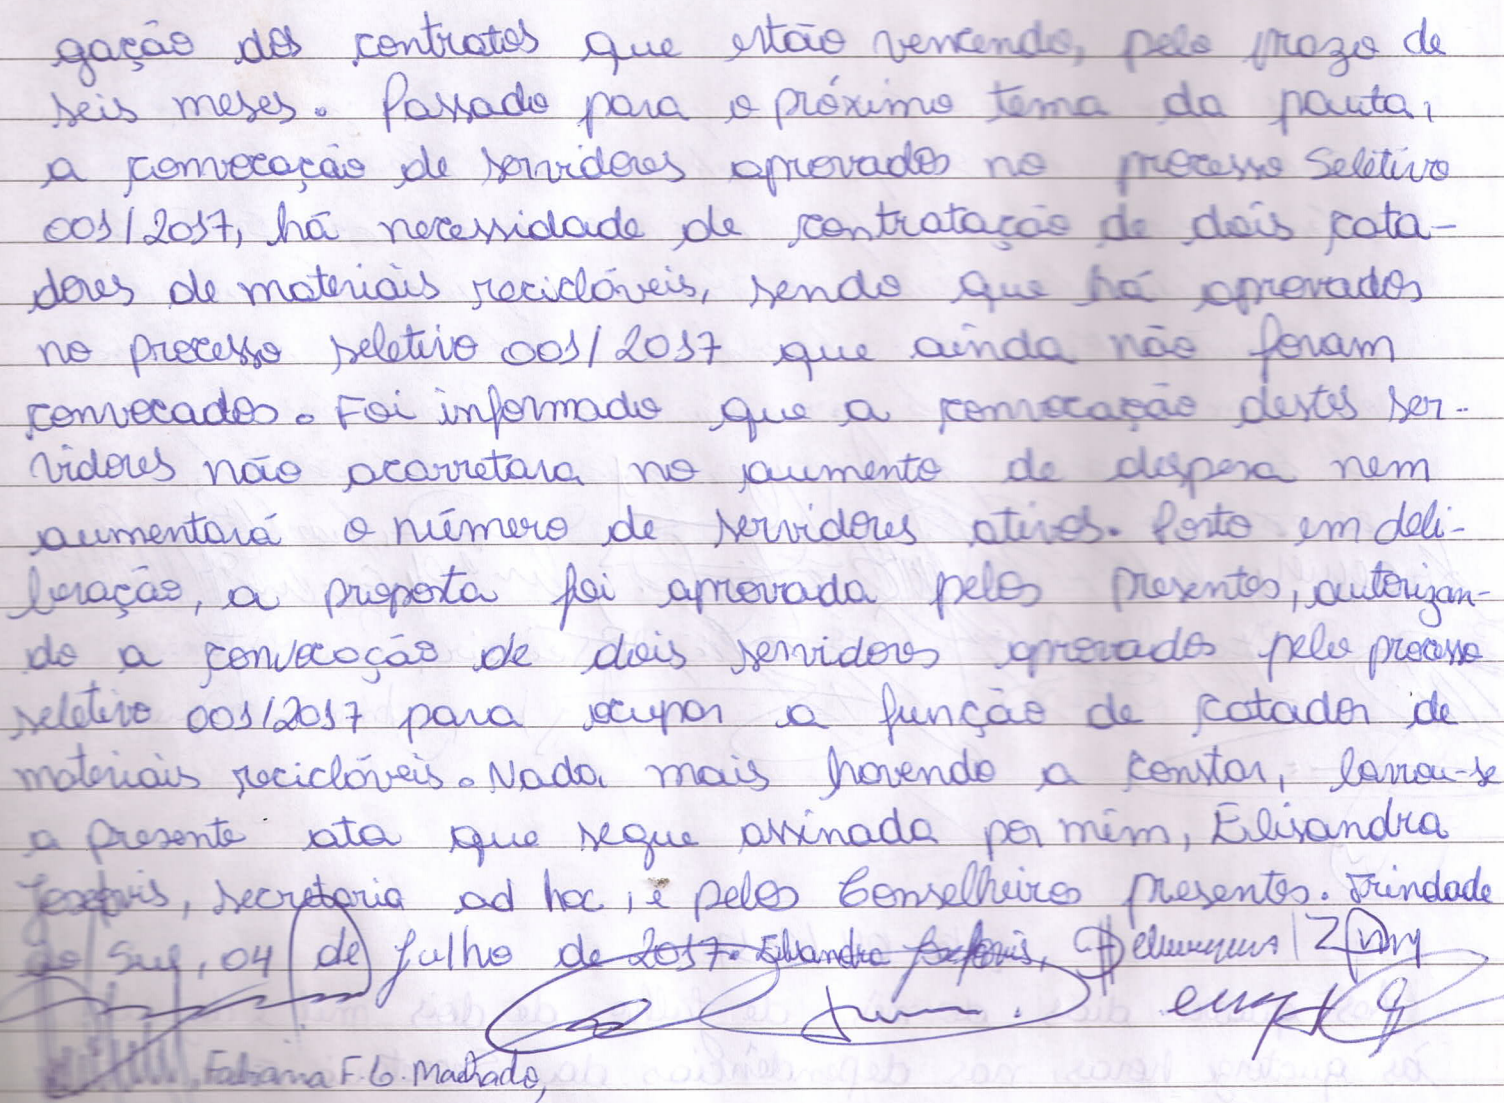 gação dos contratos que estão vencendo, pelo prazo de
seis meses. Passado para o próximo tema da pauta,
a convocação de servidores aprovados no processo Seletivo
001/2017, há necessidade de contratação de dois cata-
dores de materiais recicláveis, sendo que há aprovados
no processo seletivo 001/2017 que ainda não foram
convocados. Foi informado que a convocação destes ser-
vidores não acarretara no aumento de despesa nem
aumentará o número de servidores ativos. Posto em deli-
beração, a proposta foi aprovada pelos presentes, autorizan-
do a convocação de dois servidores aprovados pelo processo
seletivo 001/2017 para ocupar a função de catador de
materiais recicláveis. Nada mais havendo a constar, lavrou-se
a presente ata que segue assinada por mim, Elisandra
secretaria ad hoc, e pelos Conselheiros presentes. Trindade
do Sul, 04 de julho de 2017. Elisandra
Fabiana F. G. Machado,